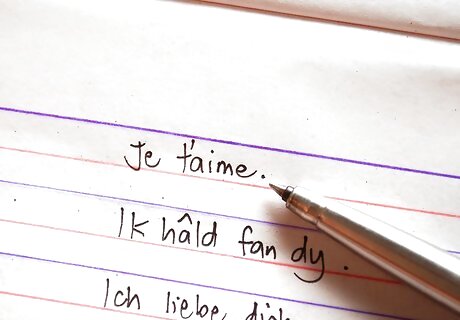 Je t'aime.
Ik hâld fan dy.
Ich liebe dich